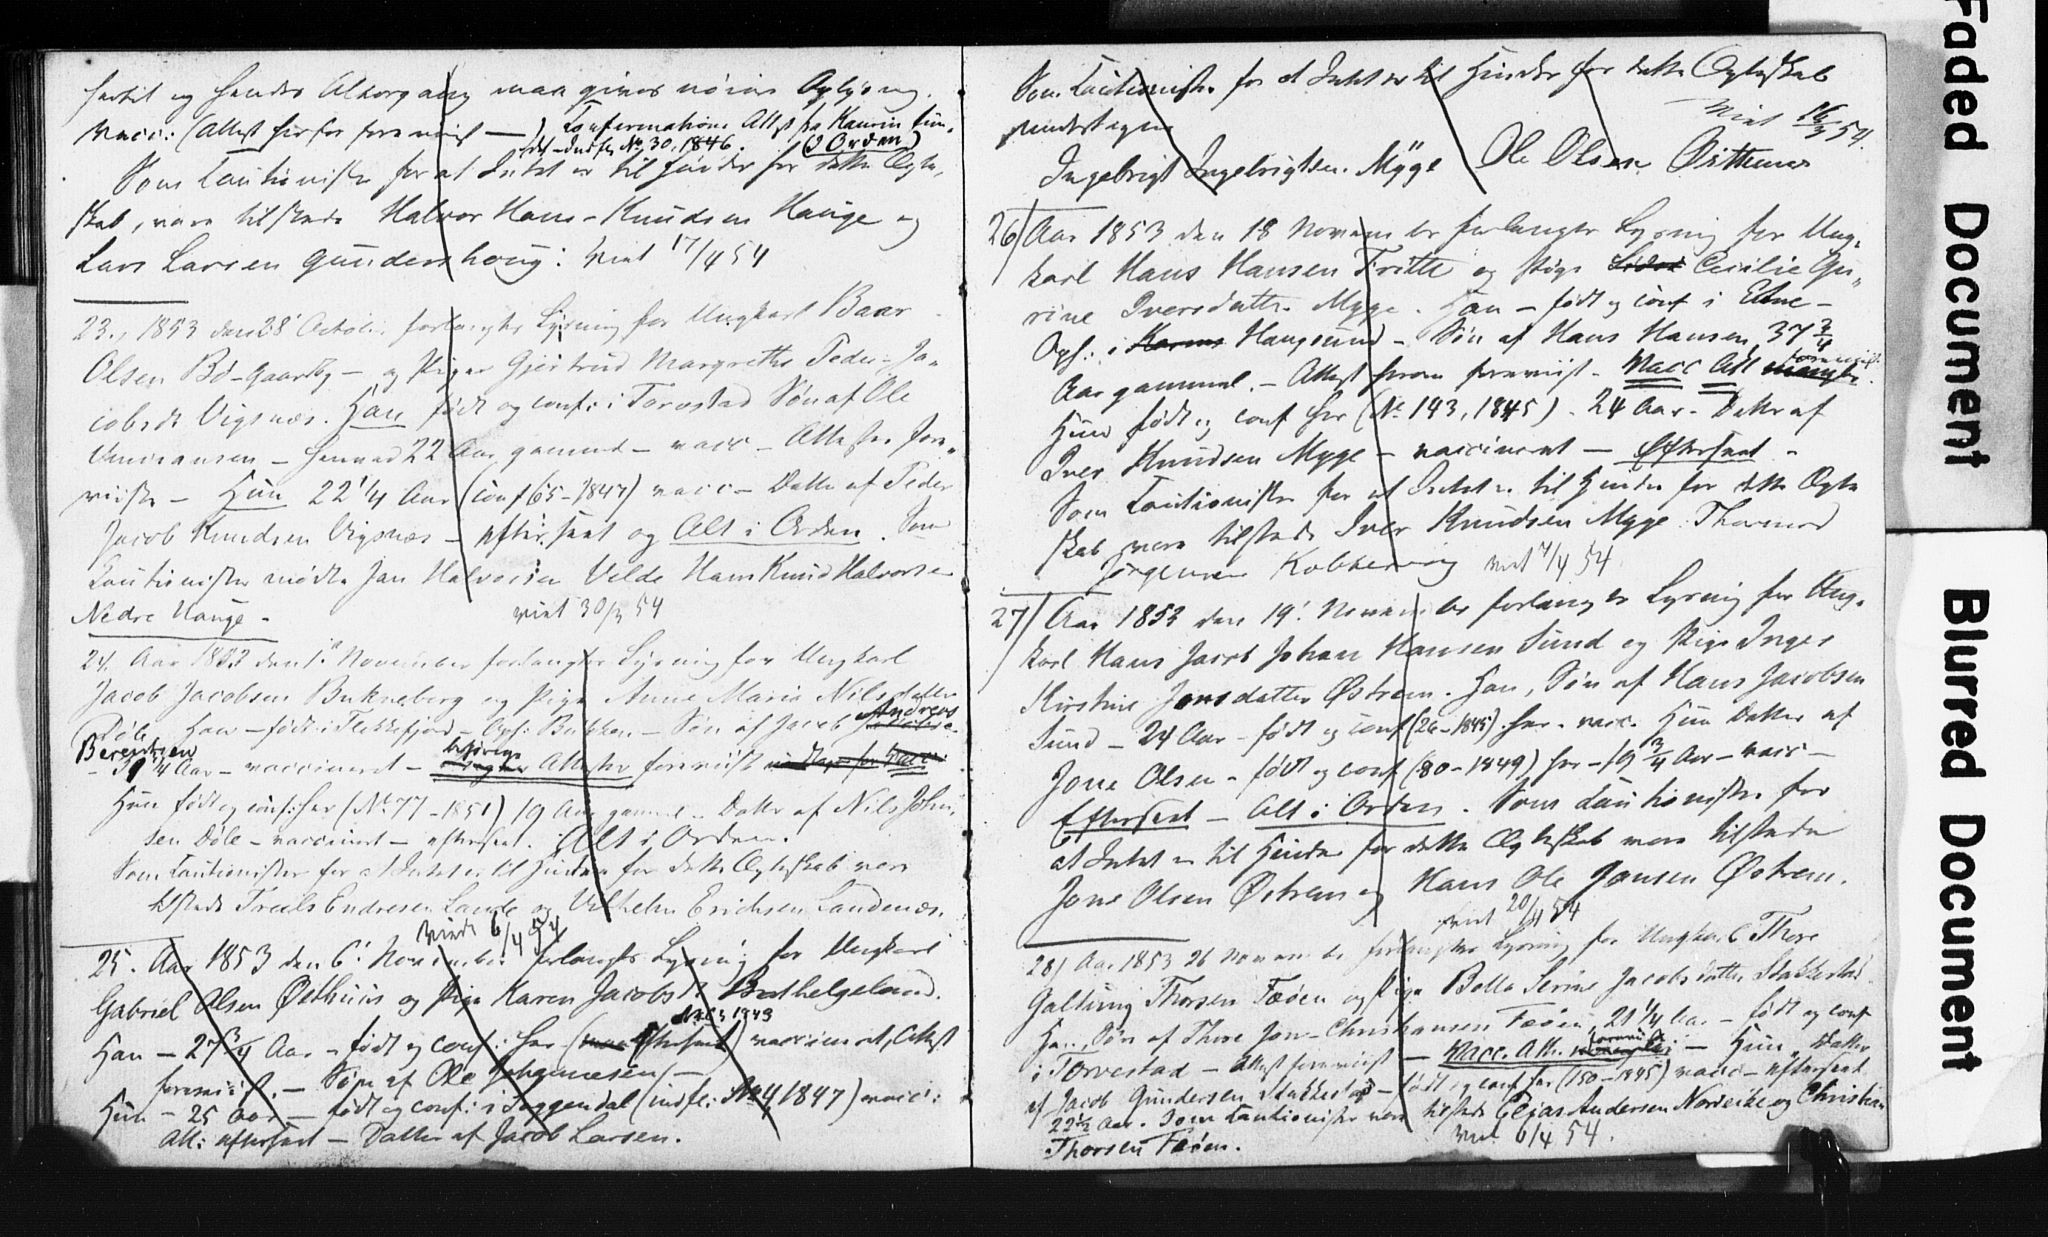 hertil og hendes Alder gang maa gives nöiere Oplysning.
Vacc: (Attest herfor foreviist —) Confirmations Att fra
indfl No 30, 1846. (I Orden)
Som Cautionister for at Intet er til Hinder for dette Egte,
skab, vare tilstede Halvor Hans-Knudsen Hauge og
Lars Larsen Gundershoug: Viet 17/4 54
23., 1853 den 28 Octob: forlangtes Lysning for Ungkarl Baar
Olsen Bø-Gaardby — og Pigen Gjertrud Margrethe Peder-Ja-
cobsdt Vigsnæs. Han født og conf: i Torvestad Søn af Ole
— henved 22 Aar gammel — vacc — Attester fore„
viiste — Hun 22 1/4 Aar (conf 65-1847) vacc — Datter af Peder
Jacob Knudsen Vigsnæs — efterseet og Alt i Orden. Som
Cautionister mødte Jan Halvorsen Velde Hans Knud Halvorsen
Nedre Hauge - viet 30/3 54
24. Aar 1853 den 1. November forlangtes Lysning for Ungkarl
Jacob Jacobsen Bukneberg og Pige Anne Maria Nilsdatter
Døle Han — født i Flekkefjord — Opf: Bukken — Søn af Jacob Andreas
Berentsen
1/4 Aar — vaccineret — behørige Attester foreviist
Hun født og conf: her (No 77 - 1851) 19 Aar gammel — Datter af Nils John,
sen Døle — vaccineret — efterseet. Alt i Orden.
Som Cautionister for at Intet er til Hinder for dette Egteskab vare
tilstede Troels Endresen Lande og Vilhelm Erichsen Sandenæs.
Viede 6/4 54
25. Aar 1853 den 6' November forlangtes Lysning for Ungkarl
Gabriel Olsen Østhuus og Pige Karen Jacobsdt Bothelgeland.
1843
Han — 27 3/4 Aar — født og conf: her (efterseet) vaccineret, Attest
foreviist. — Søn af Ole Johannesen —
Hun — 25 Aar — født og conf: i Soggendal (indfl: No 4, 1847) vacc:
Att: efterseet — Datter af Jacob Larsen.
Som Cautionister for at Intet er til Hinder for dette Egteskab
Viet 16/3 54.
undertegne
Ingebrigt Ingebrigtsen Myge Ole Olsen Østhuus
26) Aar 1853 den 18 November forlangtes Lysning for Ung„
karl Hans Hansen Fritte og Pige Cecilie Gu„
rine Iversdatter Myge. Han — født og conf i Etne —
Opf: i Karms Haugsund — Søn af Hans Hansen, 37 3/4
Aar gammel. — Attest herom foreviist. Vacc Att foreviist
Hun født og conf her (No 143, 1845) - 24 Aar — Datter af
Iver Knudsen Myge — vaccineret — Efterseet -
Som Cautionister for at Intet er til Hinder for dette Egte
skab vare tilstede Iver Knudsen Myge Thormod
Jørgensen Kobbervig viet 7/4 54
27) Aar 1853 den 19' November forlangtes Lysning for Ung„
karl Hans Jacob Johan Hansen Sund og Pige Inger
Kirstine Jonsdatter Østrem. Han, Søn af Hans Jacobsen
Sund — 24 Aar — født og conf (26-1845) her - vacc. Hun Datter af
Jone Olsen — født og conf (80-1849) her — 19 3/4 Aar — vacc —
Efterseet — Alt i Orden. Som Cautionister for
at Intet er til Hinder for dette Egteskab vare tilstede
Jone Olsen Østrem og Hans Ole Jonsen Østrem.
viet 20/4 54
28) Aar 1853 26 November forlangtes Lysning for Ungkarl Thore
Galtung Thorsen Fæøen og Pige Bolla Serine Jacobsdatter Stakkestad
Han, Søn af Thore Jon-Christiansen Fæøen, 21 1/4 Aar — født og conf
i Torvestad — Attest foreviist — Vacc. Att. foreviist — Hun, Datter
af Jacob Gundersen Stakkestad — født og conf her (150-1845) vacc — efterseet
22 1/2 Aar. Som Cautionister vare tilstede Elias Andersen Norheike og Christian
Thorsen Fæøen. viet 6/4 54.
Faded Document
Blurred Document